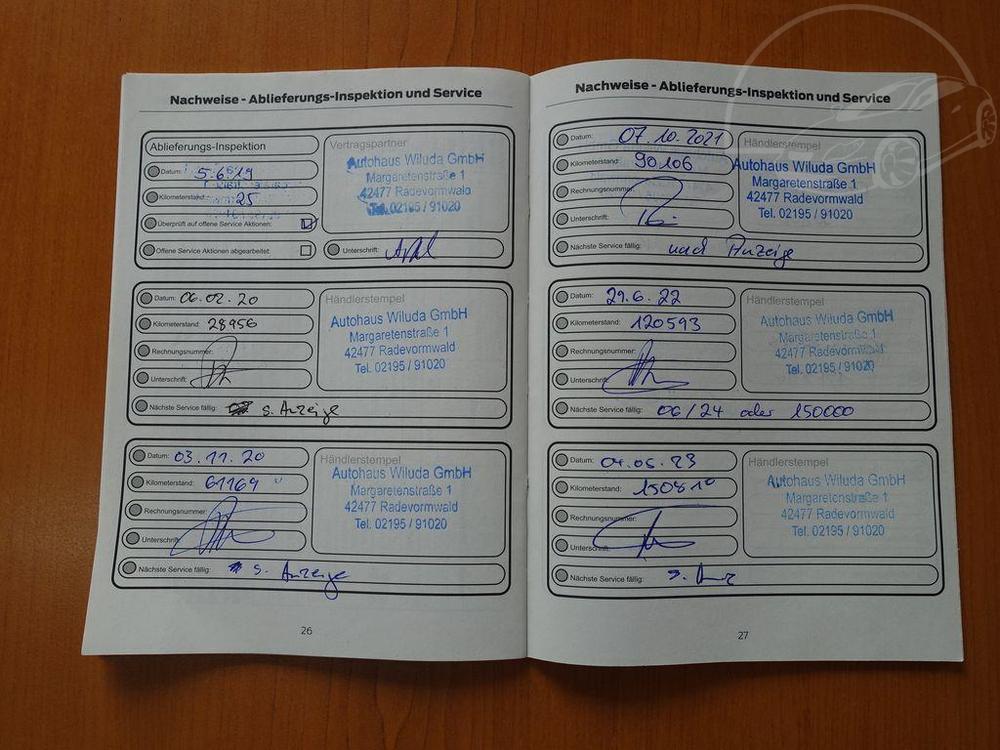 Nachweise - Ablieferungs-Inspektion und Service
Ablieferungs-Inspektion
Datum: 5.6.19
Kilometerstand: 25
Überprüft auf offene Service Aktionen:
Offene Service Aktionen abgearbeitet:
Vertragspartner
Autohaus Wiluda GmbH
Margaretenstraße 1
42477 Radevormwald
Tel. 02195 / 91020
Unterschrift:
Datum: 06.02.20
Kilometerstand: 28956
Rechnungsnummer:
Unterschrift:
Händlerstempel
Autohaus Wiluda GmbH
Margaretenstraße 1
42477 Radevormwald
Tel. 02195 / 91020
Nächste Service fällig: s. Anzeige
Datum: 03.11.20
Kilometerstand: 61169
Rechnungsnummer:
Unterschrift:
Händlerstempel
Autohaus Wiluda GmbH
Margaretenstraße 1
42477 Radevormwald
Tel. 02195 / 91020
Nächste Service fällig: s. Anzeige
26
Nachweise - Ablieferungs-Inspektion und Service
Datum: 07.10.2021
Kilometerstand: 90106
Rechnungsnummer:
Unterschrift:
Händlerstempel
Autohaus Wiluda GmbH
Margaretenstraße 1
42477 Radevormwald
Tel. 02195 / 91020
Nächste Service fällig: nach Anzeige
Datum: 29.6.22
Kilometerstand: 120593
Rechnungsnummer:
Unterschrift:
Händlerstempel
Autohaus Wiluda GmbH
Margaretenstraße 1
42477 Radevormwald
Tel. 02195 / 91020
Nächste Service fällig: 06/24 oder 150000
Datum: 04.05.23
Kilometerstand: 150810
Rechnungsnummer:
Unterschrift:
Händlerstempel
Autohaus Wiluda GmbH
Margaretenstraße 1
42477 Radevormwald
Tel. 02195 / 91020
Nächste Service fällig: s. Anz
27